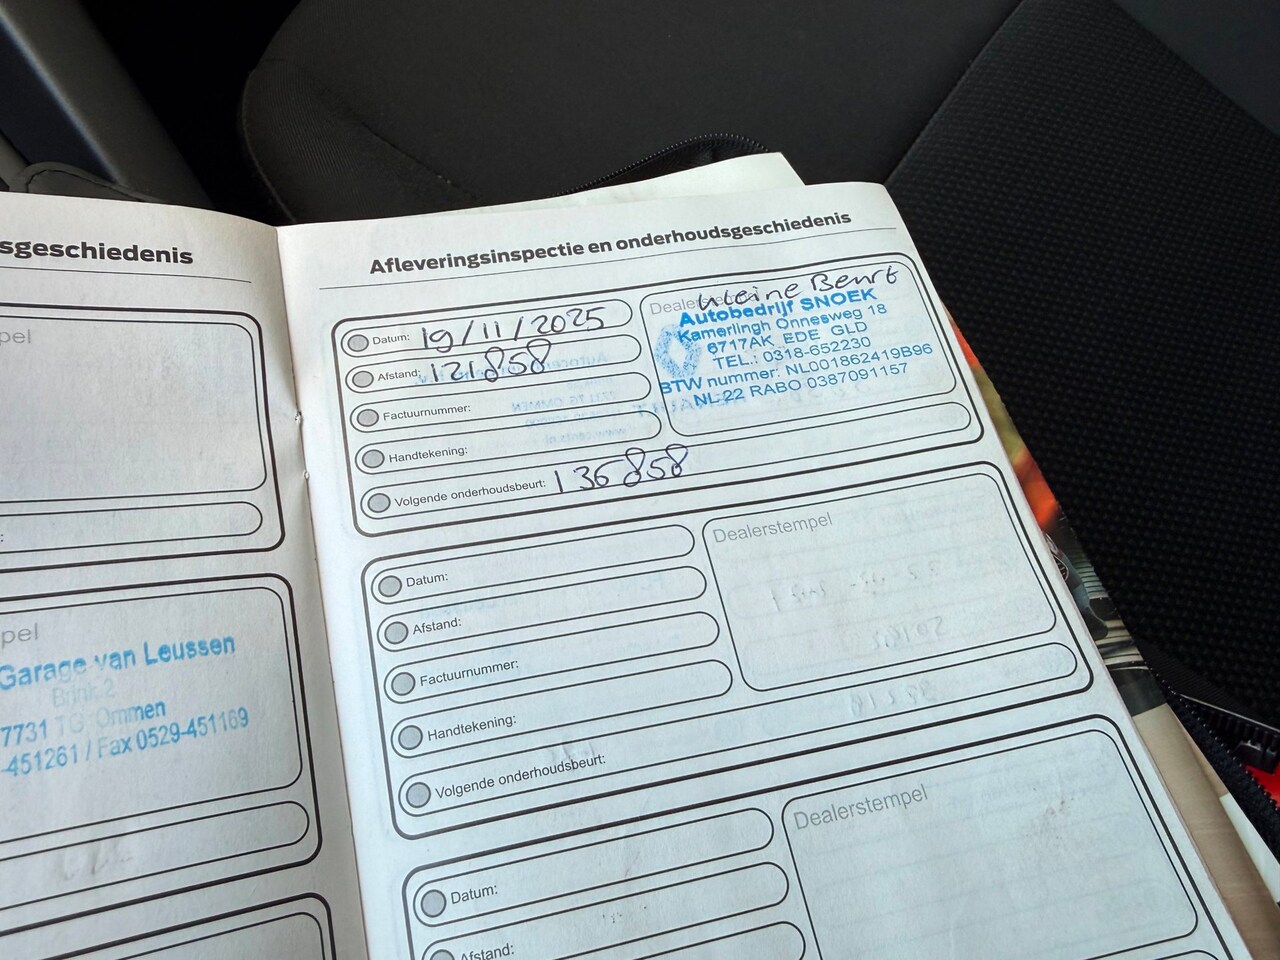 sgeschiedenis
pel
:
pel
Garage van Leussen
Brink 2
7731 TG Ommen
-451261 / Fax 0529-451169
Afleveringsinspectie en onderhoudsgeschiedenis
Datum: 19/11/2025
Afstand: 121858
Factuurnummer:
Handtekening:
Volgende onderhoudsbeurt: 136858
Kleine Beurt
Autobedrijf SNOEK
Kamerlingh Onnesweg 18
6717AK EDE GLD
TEL.: 0318-652230
BTW nummer: NL001862419B96
NL 22 RABO 0387091157
Datum:
Afstand:
Factuurnummer:
Handtekening:
Volgende onderhoudsbeurt:
Dealerstempel
Datum:
Afstand:
Dealerstempel